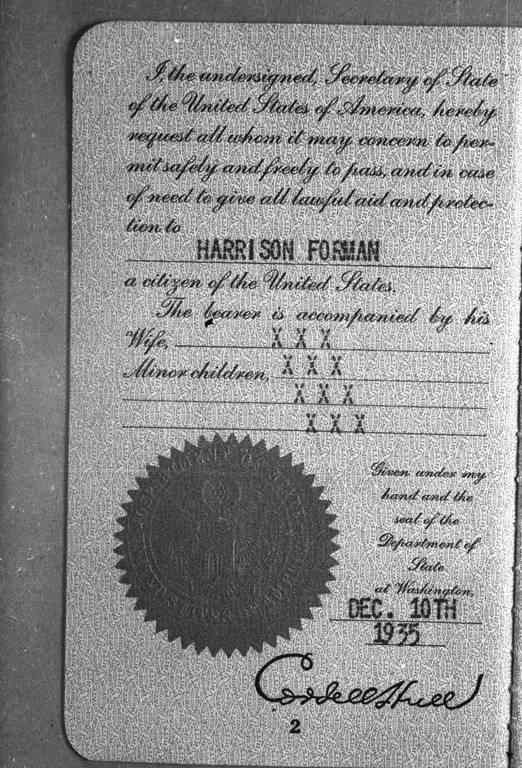 I, the undersigned, Secretary of State
of the United States of America, hereby
request all whom it may concern to per-
mit safely and freely to pass, and in case
of need to give all lawful aid and protec-
tion to
HARRISON FORMAN
a citizen of the United States.
The bearer is accompanied by his
Wife, X X X
Minor children, X X X
X X X
X X X
Given under my
hand and the
seal of the
Department of
State
at Washington,
DEC. 10TH
1935
Cordell Hull
2